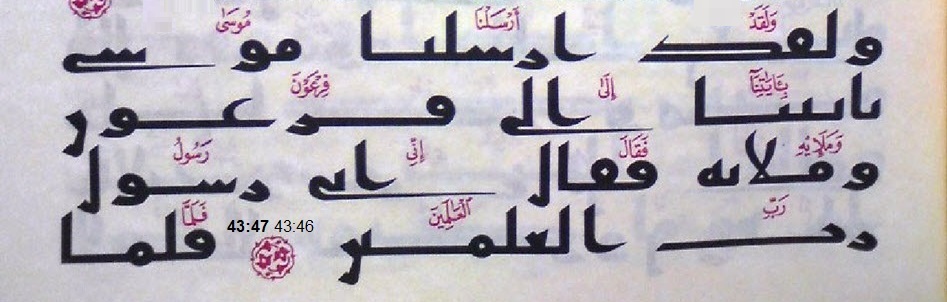 وَلَقَدْ أَرْسَلْنَا مُوسَىٰ
ولقد ارسلنا موسى
بِـَٔايَـٰتِنَآ إِلَىٰ فِرْعَوْنَ
باييتنا الى فرعون
وَمَلَإِيْهِ فَقَالَ إِنِّى رَسُولُ
وملايه فقال انى رسول
رَبِّ ٱلْعَـٰلَمِينَ فَلَمَّا
رب العلمين 43:46 43:47 فلما